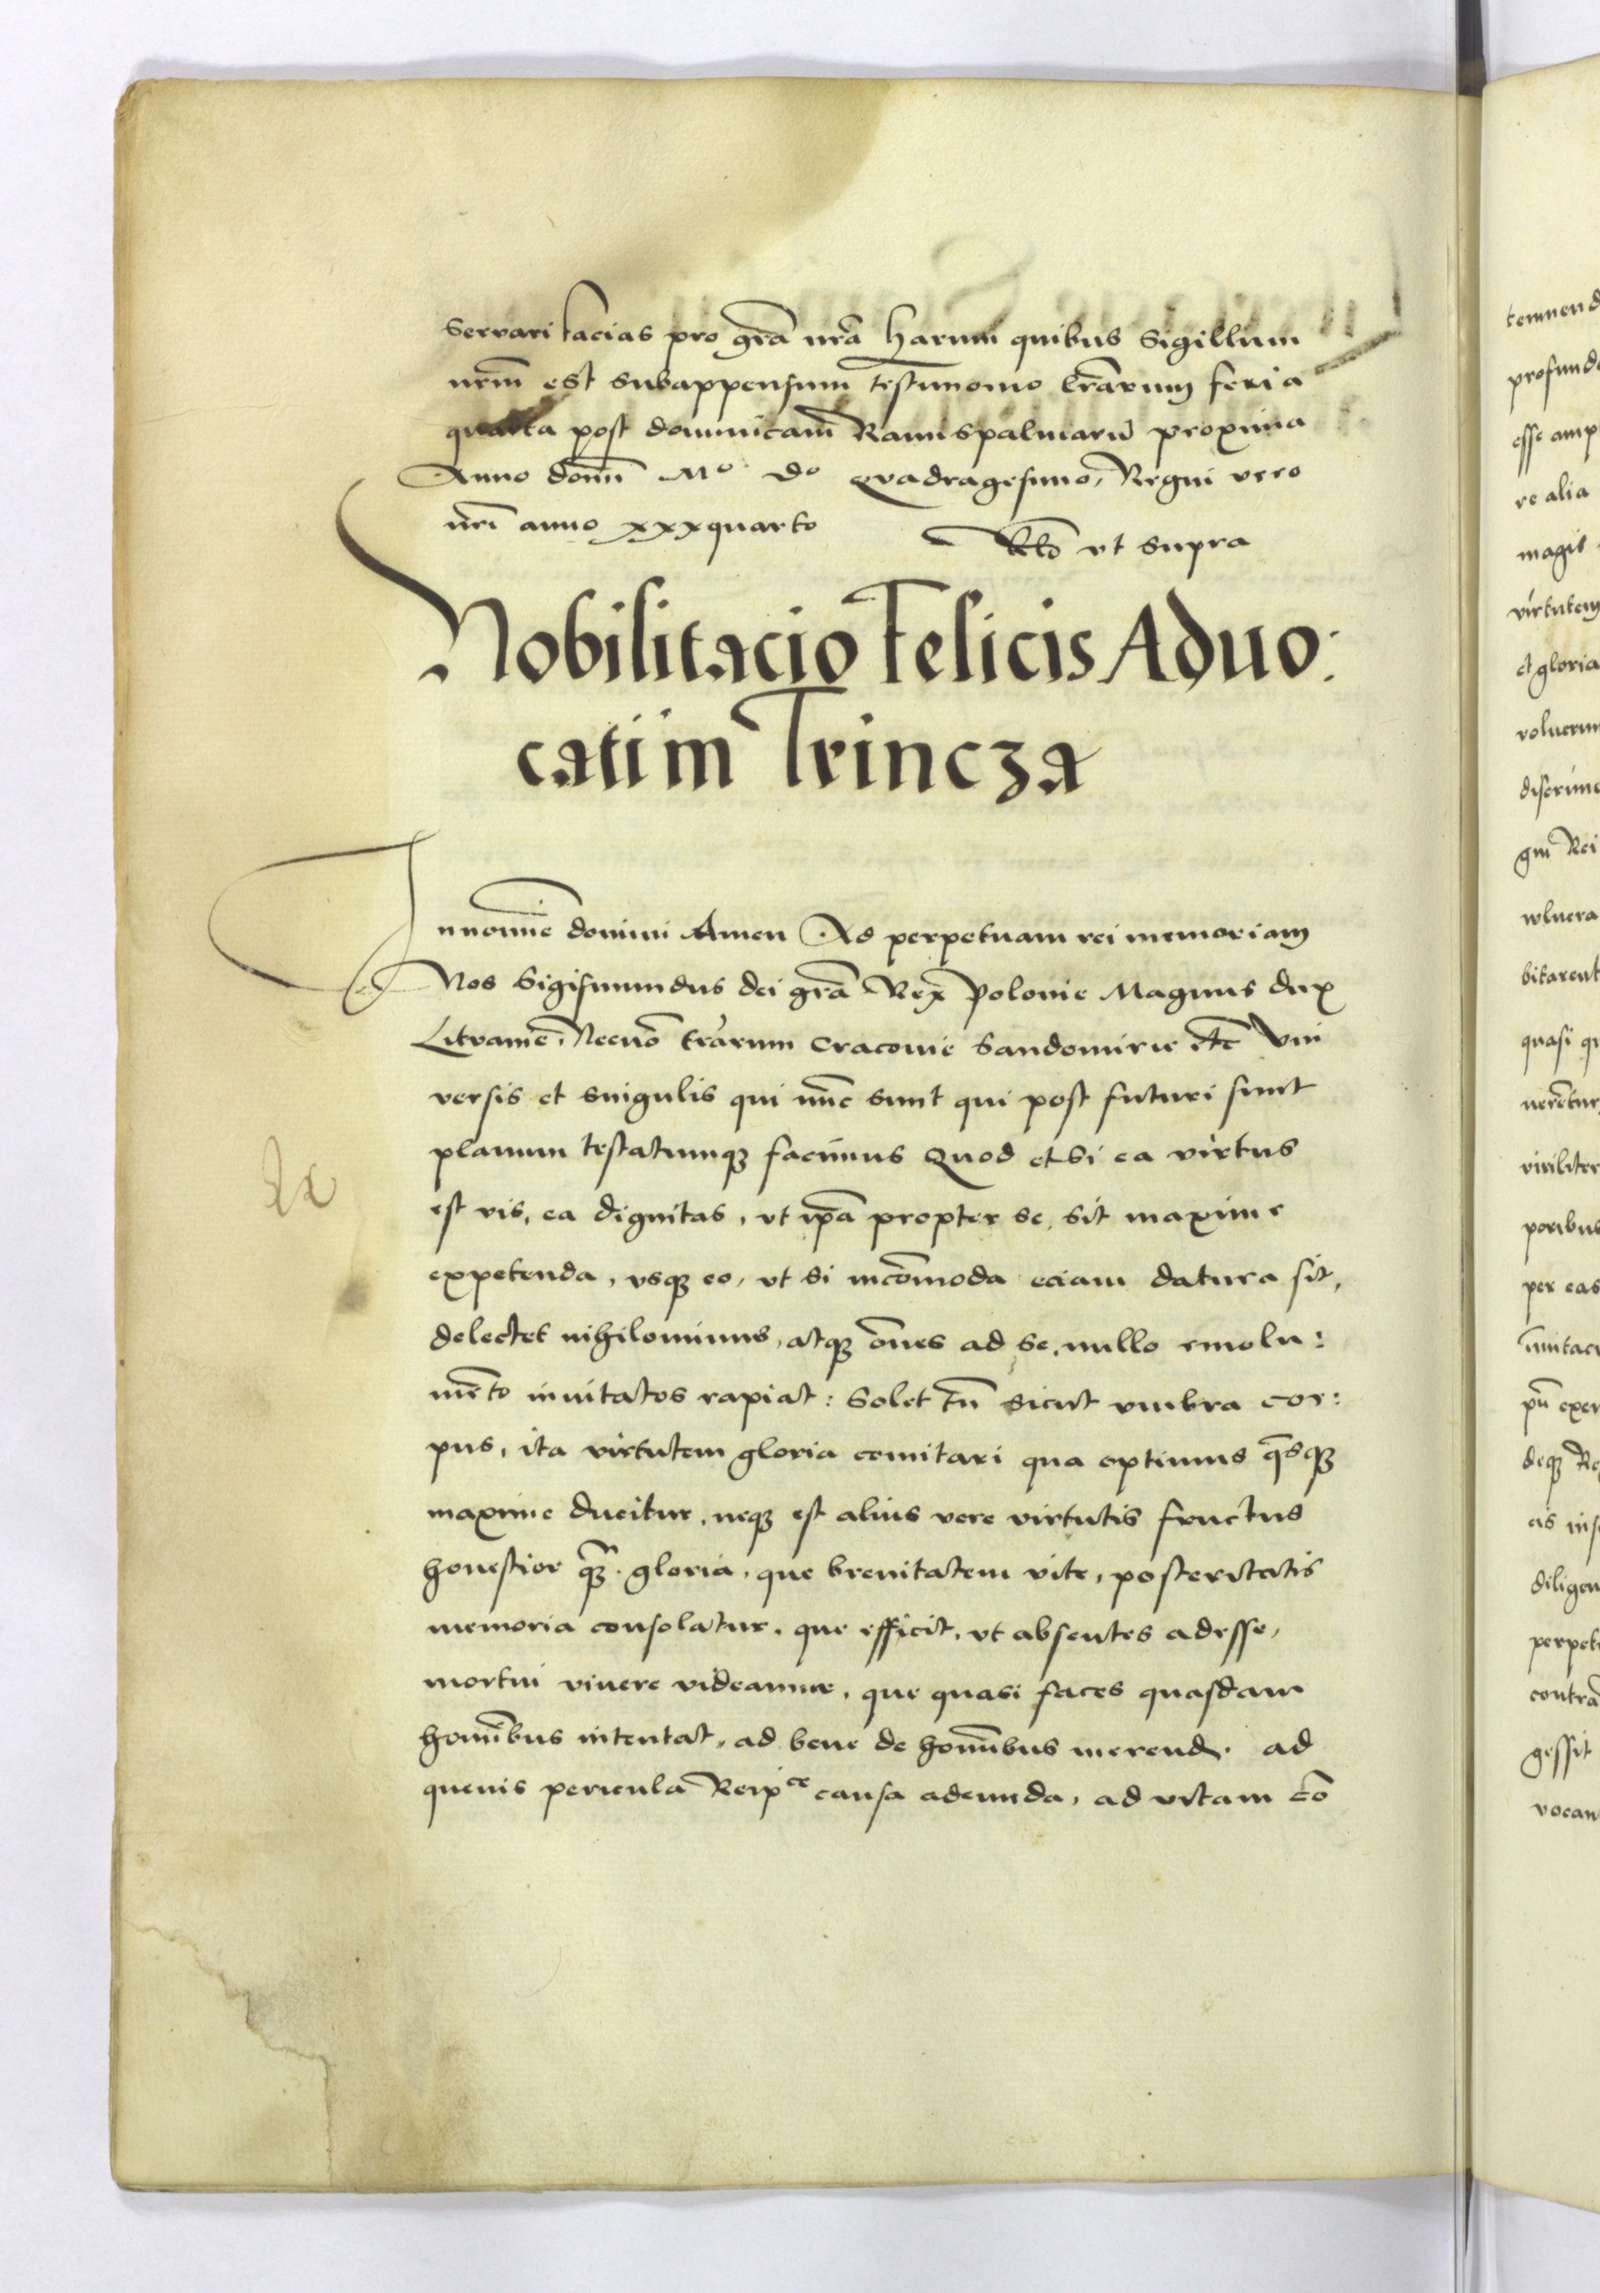 servari facias pro gr̃a nr̃a harum quibus Sigillum
nr̃m est subappensum testimonio lr̃arum feria
quarta post dominicam Ramispalmarũ proxima
Anno domı̃ Mº dº Qvadragesimo, Regni vero
nr̃i anno xxxquarto
ut supra
Nobilitacio Felicis Aduo:
cati im Trincza
In nomı̃e domini Amen Ad perpetuam rei memoriam
Nos Sigismundus dei gr̃a Rex Polonie Magnus dux
Litvanie, Necnõ tr̃arum Cracovie Sandomirie etc̃ Vni
versis et singulis qui nũc sunt qui post futuri sunt
planum testatumqꝫ facimus Quod etsi ea virtus
est vis, ea dignitas, vt ip̃a propter se, sit maxime
expetenda, vsqꝫ eo, vt si incõmoda eciam datura sit,
delectet nihilominus, atqꝫ õnes ad se, nullo emolu:
mẽto inuitatos rapiat: Solet tñ sicut vmbra cor:
pus, ita virtutem gloria comitari qua optimus q̃sqꝫ
maxime ducitur, neqꝫ est alius vere virtutis fructus
honestior qꝫ̃ gloria, que breuitatem vite, posteritatis
memoria consolatur, que efficit, vt absentes adesse,
mortui viuere videamur, que quasi faces quasdam
homı̃bus intentat, ad bene de homı̃bus merend. ad
queuis pericula Reipce causa adeunda, ad vitam cõ
temnend
profund
esse amp
re alia
magis
virtutem
et gloria
voluerun
discrime
gni Rei
vulnera
bitarent
quasi qu
uerẽtur
viriliter
poribus
per eas
deqꝫ
diligen
perpet
contra
gessit
vocan